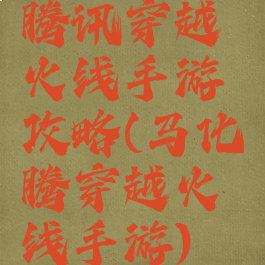 腾讯穿越
火线手游
攻略(马化
腾穿越火
线手游)